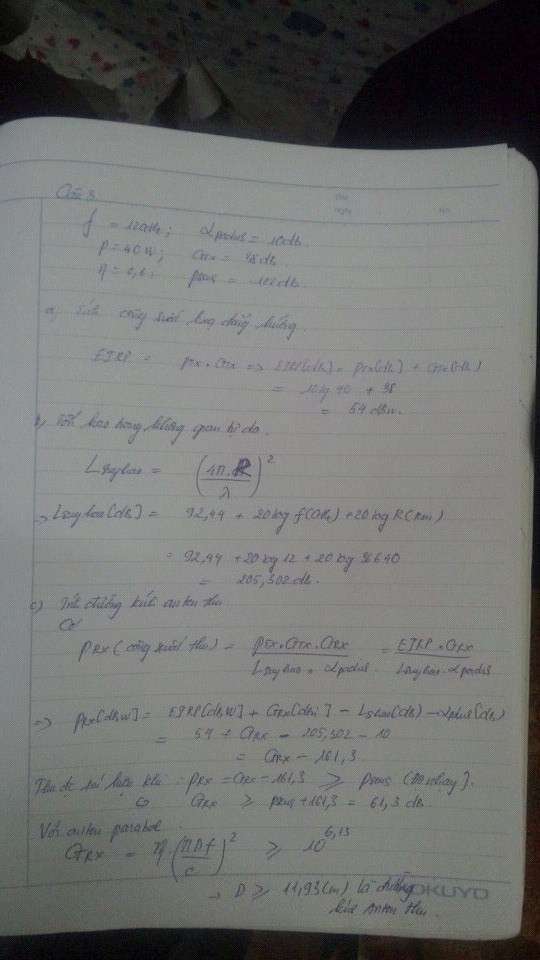 Câu 3
f = 12GHz; αplus = 10db
P = 40W; GTX = 38db
η = 0,6; psens = 100db
a, Tính công suất bức đẳng hướng
EIRP = PTX . GTX => EIRP[db] = PTX[db] + GTX[db]
= 10lg 40 + 38
= 54 dbw.
b, Tổn hao trong không gian tự do.
Lsuyhao = (4π.R/λ)²
=> Lsuyhao[db] = 92,44 + 20log f(GHz) + 20log R(km)
= 92,44 + 20log 12 + 20log 36640
= 205,302 db.
c) Tính đường kính anten thu.
Có
PRX (công suất thu) = PTX.GTX.GRX / Lsuyhao . αplus = EIRP.GRX / Lsuyhao.αplus
=> PRX[dbW] = EIRP[dbW] + GRX[dbi] - Lshao(db) - αplus(db)
= 54 + GRX - 205,302 - 10
= GRX - 161,3
Thu đc tín hiệu khi : PRX = GRX - 161,3 ≥ Psens [Độ nhạy].
GRX ≥ psens + 161,3 = 61,3 db.
Với anten parabol
GRX = η.(πDf/c)² ≥ 10^6,13
→ D ≥ 11,93(m) là đường
kính Anten thu.
KOKUYO
No.